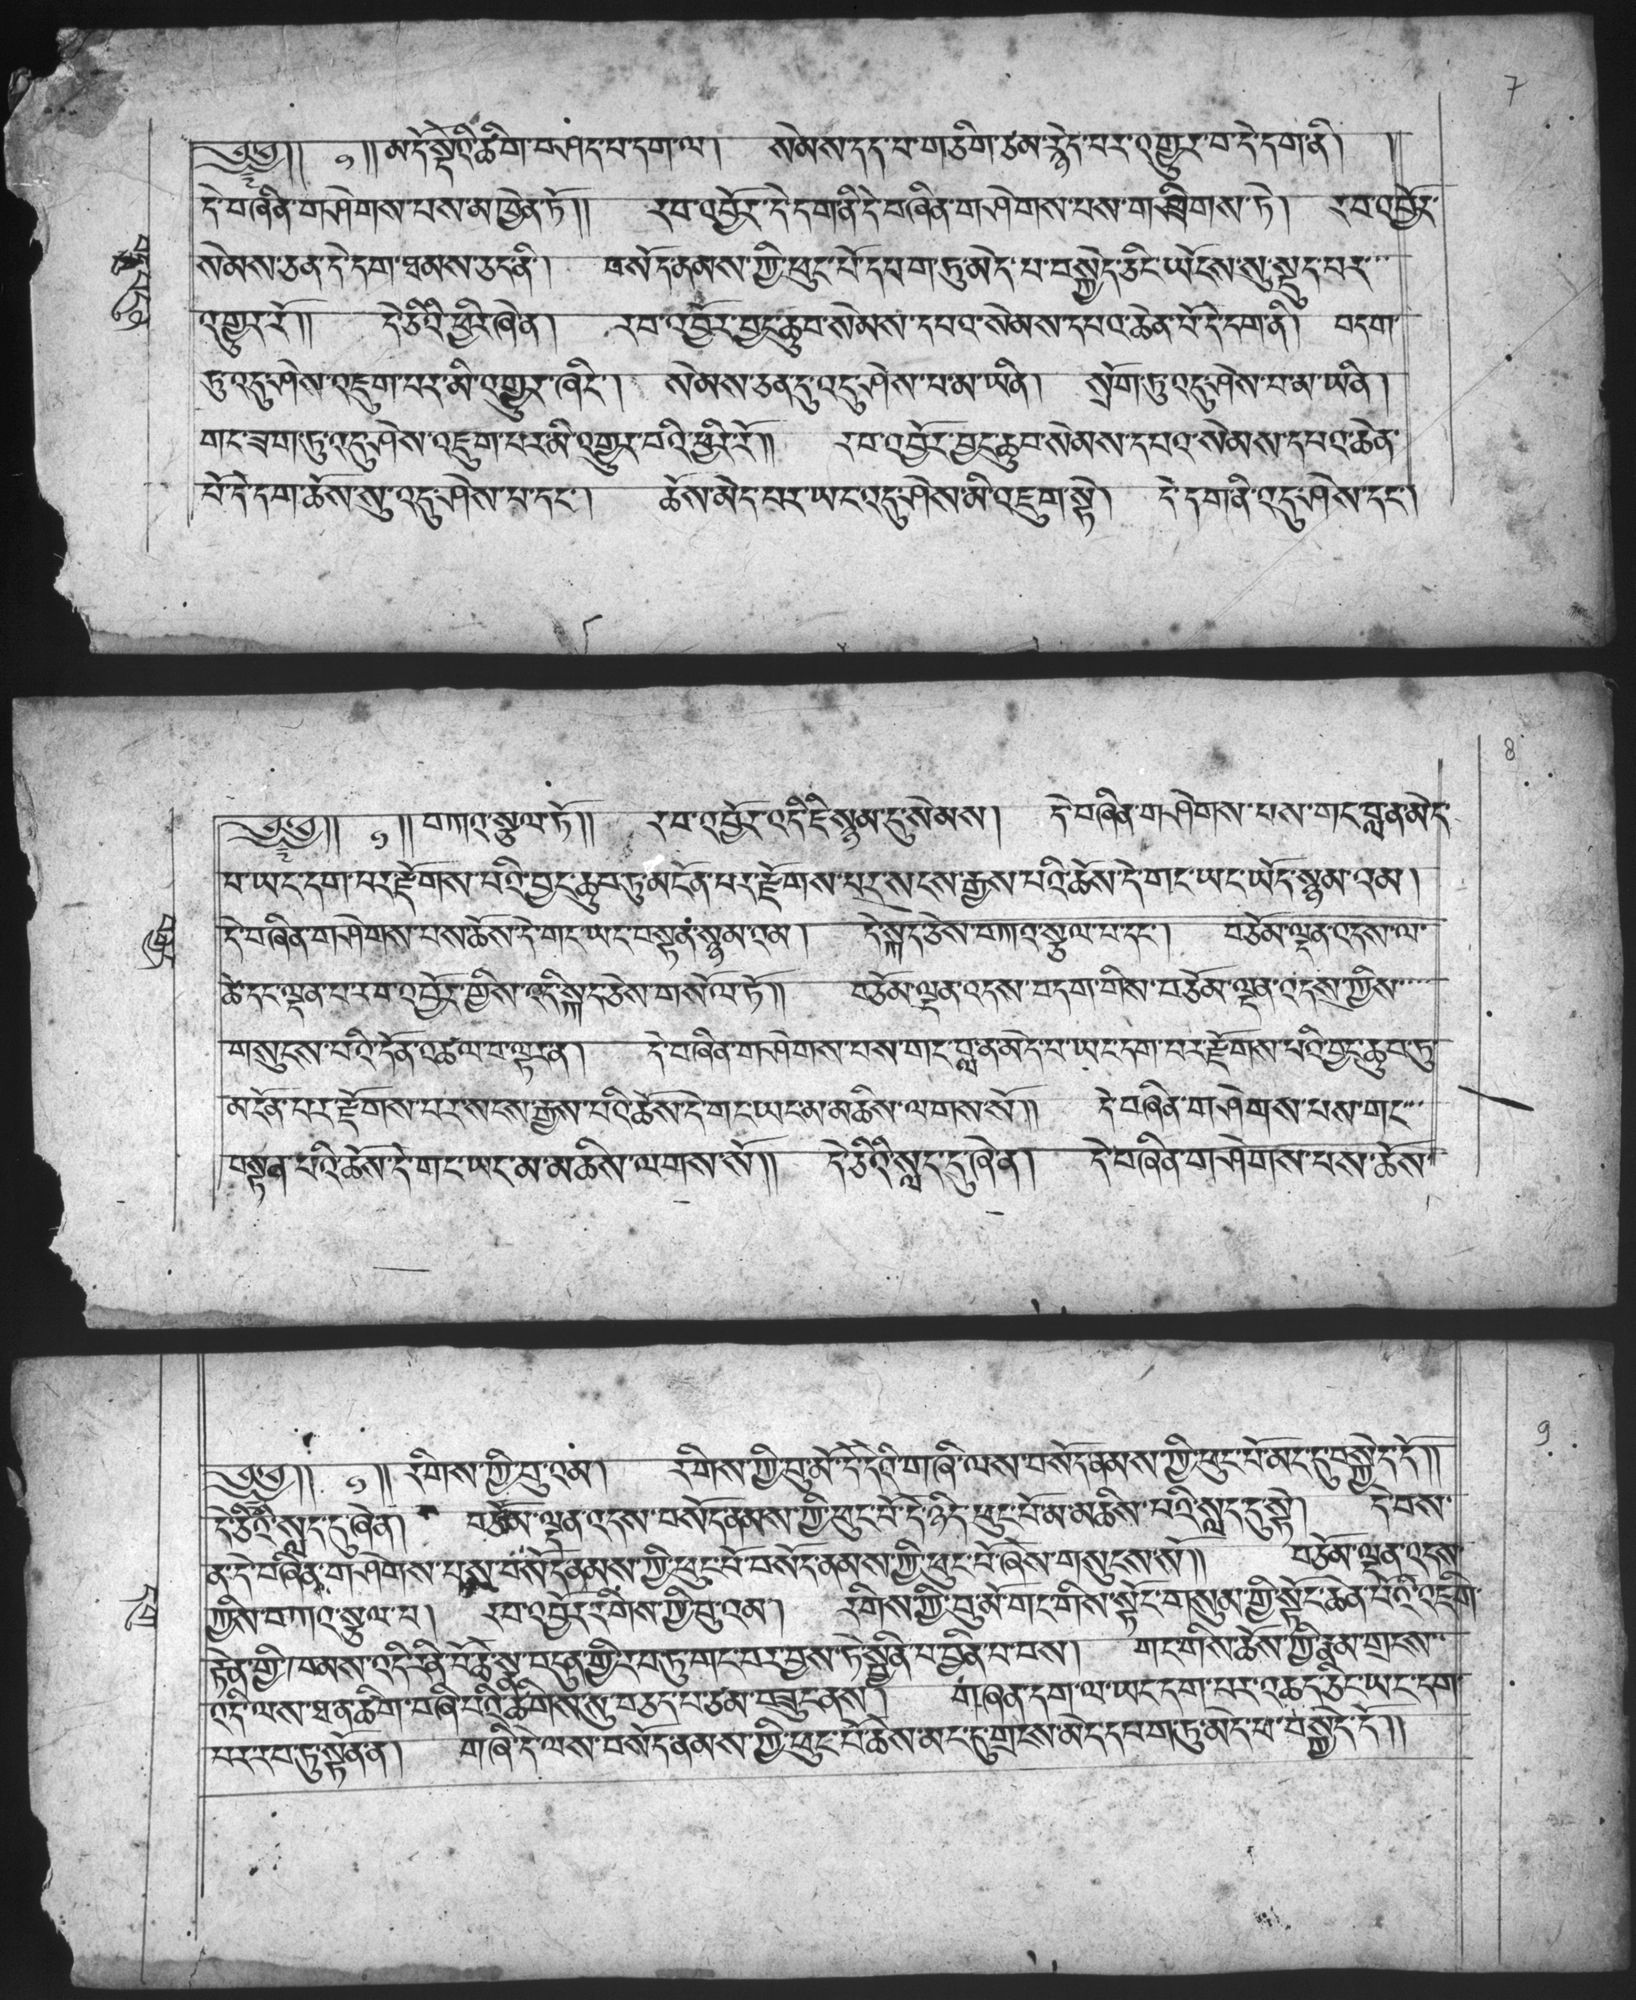 7
༄༅།། ༑ །།མདོ་སྡེའི་ཚིག་བཤད་པ་དག་ལ། སེམས་དད་པ་གཅིག་ཙམ་རྙེད་པར་འགྱུར་བ་དེ་དག་ནི། །
དེ་བཞིན་གཤེགས་པས་མཁྱེན་ཏོ།། རབ་འབྱོར་དེ་དག་ནི་དེ་བཞིན་གཤེགས་པས་གཟིགས་ཏེ། རབ་འབྱོར་
སེམས་ཅན་དེ་དག་ཐམས་ཅད་ནི། བསོད་ནམས་ཀྱི་ཕུང་པོ་དཔག་ཏུ་མེད་པ་བསྐྱེད་ཅིང་ཡོངས་སུ་སྡུད་པར་
འགྱུར་རོ།། དེ་ཅིའི་ཕྱིར་ཞེ་ན། རབ་འབྱོར་བྱང་ཆུབ་སེམས་དཔའ་སེམས་དཔའ་ཆེན་པོ་དེ་དག་ནི། བདག་
ཏུ་འདུ་ཤེས་འཇུག་པར་མི་འགྱུར་ཞིང་། སེམས་ཅན་དུ་འདུ་ཤེས་པ་མ་ཡིན། སྲོག་ཏུ་འདུ་ཤེས་པ་མ་ཡིན།
གང་ཟག་ཏུ་འདུ་ཤེས་འཇུག་པར་མི་འགྱུར་བའི་ཕྱིར་རོ།། རབ་འབྱོར་བྱང་ཆུབ་སེམས་དཔའ་སེམས་དཔའ་ཆེན་
པོ་དེ་དག་ཆོས་སུ་འདུ་ཤེས་པ་དང་། ཆོས་མེད་པར་ཡང་འདུ་ཤེས་མི་འཇུག་སྟེ། དེ་དག་ནི་འདུ་ཤེས་དང་།
8
༄༅།། ༑ །།བཀའ་སྩལ་ཏོ།། རབ་འབྱོར་འདི་ཇི་སྙམ་དུ་སེམས། དེ་བཞིན་གཤེགས་པས་གང་བླ་ན་མེད་
པ་ཡང་དག་པར་རྫོགས་པའི་བྱང་ཆུབ་ཏུ་མངོན་པར་རྫོགས་པར་སངས་རྒྱས་པའི་ཆོས་དེ་གང་ཡང་ཡོད་སྙམ་འམ།
དེ་བཞིན་གཤེགས་པས་ཆོས་དེ་གང་ཡང་བསྟན་སྙམ་འམ། དེ་སྐད་ཅེས་བཀའ་སྩལ་པ་དང་། བཅོམ་ལྡན་འདས་ལ་
ཚེ་དང་ལྡན་པ་རབ་འབྱོར་གྱིས་འདི་སྐད་ཅེས་གསོལ་ཏོ།། བཅོམ་ལྡན་འདས་བདག་གིས་བཅོམ་ལྡན་འདས་ཀྱིས་
གསུངས་པའི་དོན་འཚལ་བ་ལྟར་ན། དེ་བཞིན་གཤེགས་པས་གང་བླ་ན་མེད་པ་ཡང་དག་པར་རྫོགས་པའི་བྱང་ཆུབ་ཏུ་
མངོན་པར་རྫོགས་པར་སངས་རྒྱས་པའི་ཆོས་དེ་གང་ཡང་མ་མཆིས་ལགས་སོ།། དེ་བཞིན་གཤེགས་པས་གང་
བསྟན་པའི་ཆོས་དེ་གང་ཡང་མ་མཆིས་ལགས་སོ།། དེ་ཅིའི་སླད་དུ་ཞེ་ན། དེ་བཞིན་གཤེགས་པས་ཆོས་
9
༄༅།། ༑ །།རིགས་ཀྱི་བུ་འམ། རིགས་ཀྱི་བུ་མོ་དེ་དེའི་གཞི་ལས་བསོད་ནམས་ཀྱི་ཕུང་པོ་མང་དུ་བསྐྱེད་དོ།།
དེ་ཅིའི་སླད་དུ་ཞེ་ན། བཅོམ་ལྡན་འདས་བསོད་ནམས་ཀྱི་ཕུང་པོ་དེ་ཉིད་ཕུང་པོ་མ་མཆིས་པའི་སླད་དུ་སྟེ། དེ་བས་
ན་དེ་བཞིན་གཤེགས་པས་བསོད་ནམས་ཀྱི་ཕུང་པོ་བསོད་ནམས་ཀྱི་ཕུང་པོ་ཞེས་གསུངས་སོ།། བཅོམ་ལྡན་འདས་
ཀྱིས་བཀའ་སྩལ་པ། རབ་འབྱོར་རིགས་ཀྱི་བུ་འམ། རིགས་ཀྱི་བུ་མོ་གང་གིས་སྟོང་གསུམ་གྱི་སྟོང་ཆེན་པོའི་འཇིག་
རྟེན་གྱི་ཁམས་འདི་རིན་པོ་ཆེ་སྣ་བདུན་གྱི་རབ་ཏུ་གང་བར་བྱས་ཏེ་སྦྱིན་པ་བྱིན་པ་བས། གང་གིས་ཆོས་ཀྱི་རྣམ་གྲངས་
འདི་ལས་ཐ་ན་ཚིག་བཞི་པའི་ཚིགས་སུ་བཅད་པ་ཙམ་བཟུང་ནས། གཞན་དག་ལ་ཡང་དག་པར་འཆད་ཅིང་ཡང་དག་
པར་རབ་ཏུ་སྟོན་ན། གཞི་དེ་ལས་བསོད་ནམས་ཀྱི་ཕུང་པོ་ཆེས་མང་དུ་གྲངས་མེད་དཔག་ཏུ་མེད་པ་བསྐྱེད་དོ།།